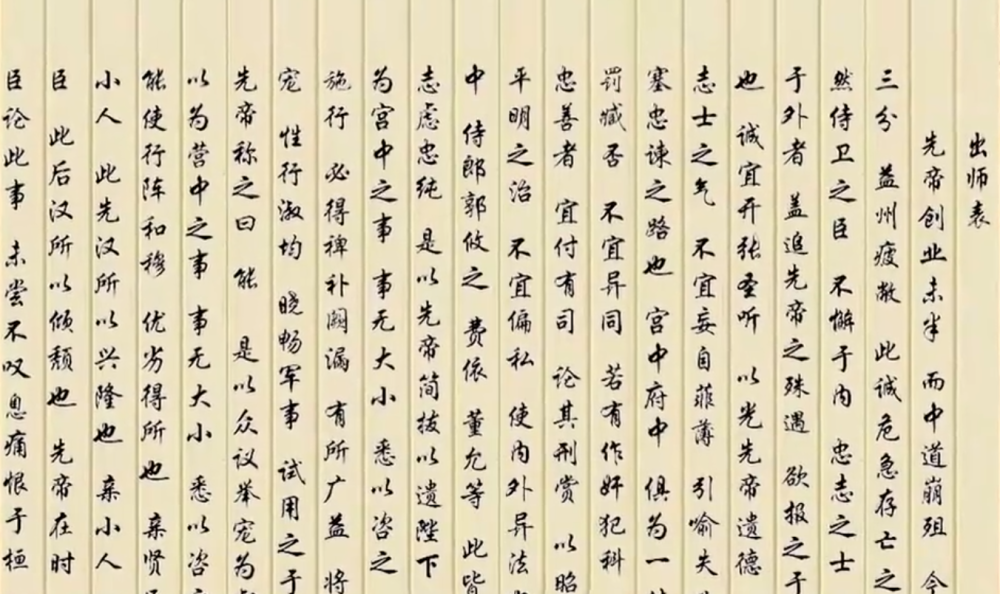 出师表
先帝创业未半 而中道崩殂 今
三分 益州疲敝 此诚危急存亡之
然侍卫之臣 不懈于内 忠志之士
于外者 盖追先帝之殊遇 欲报之于
也 诚宜开张圣听 以光先帝遗德
志士之气 不宜妄自菲薄 引喻失
塞忠谏之路也 宫中府中 俱为一
罚臧否 不宜异同 若有作奸犯科
忠善者 宜付有司 论其刑赏 以昭
平明之治 不宜偏私 使内外异法
中 侍郎郭攸之 费依 董允等 此皆
志虑忠纯 是以先帝简拔以遗陛下
为宫中之事 事无大小 悉以咨之
施行 必得裨补阙漏 有所广益 将
宠 性行淑均 晓畅军事 试用之于
先帝称之曰 能 是以众议举宠为
以为营中之事 事无大小 悉以咨
能使行阵和穆 优劣得所也 亲贤
小人 此先汉所以兴隆也 亲小人
臣 此后汉所以倾颓也 先帝在时
臣论此事 未尝不叹息痛恨于桓